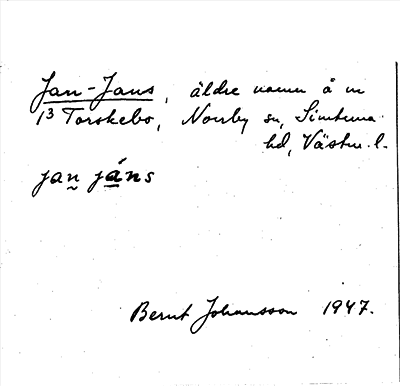 Jan-Jans, äldre namn å m
1³ Torskebo, Norrby sn, Simtuna
hd, Västm. l.
jan jáns
Bernt Johansson 1947.